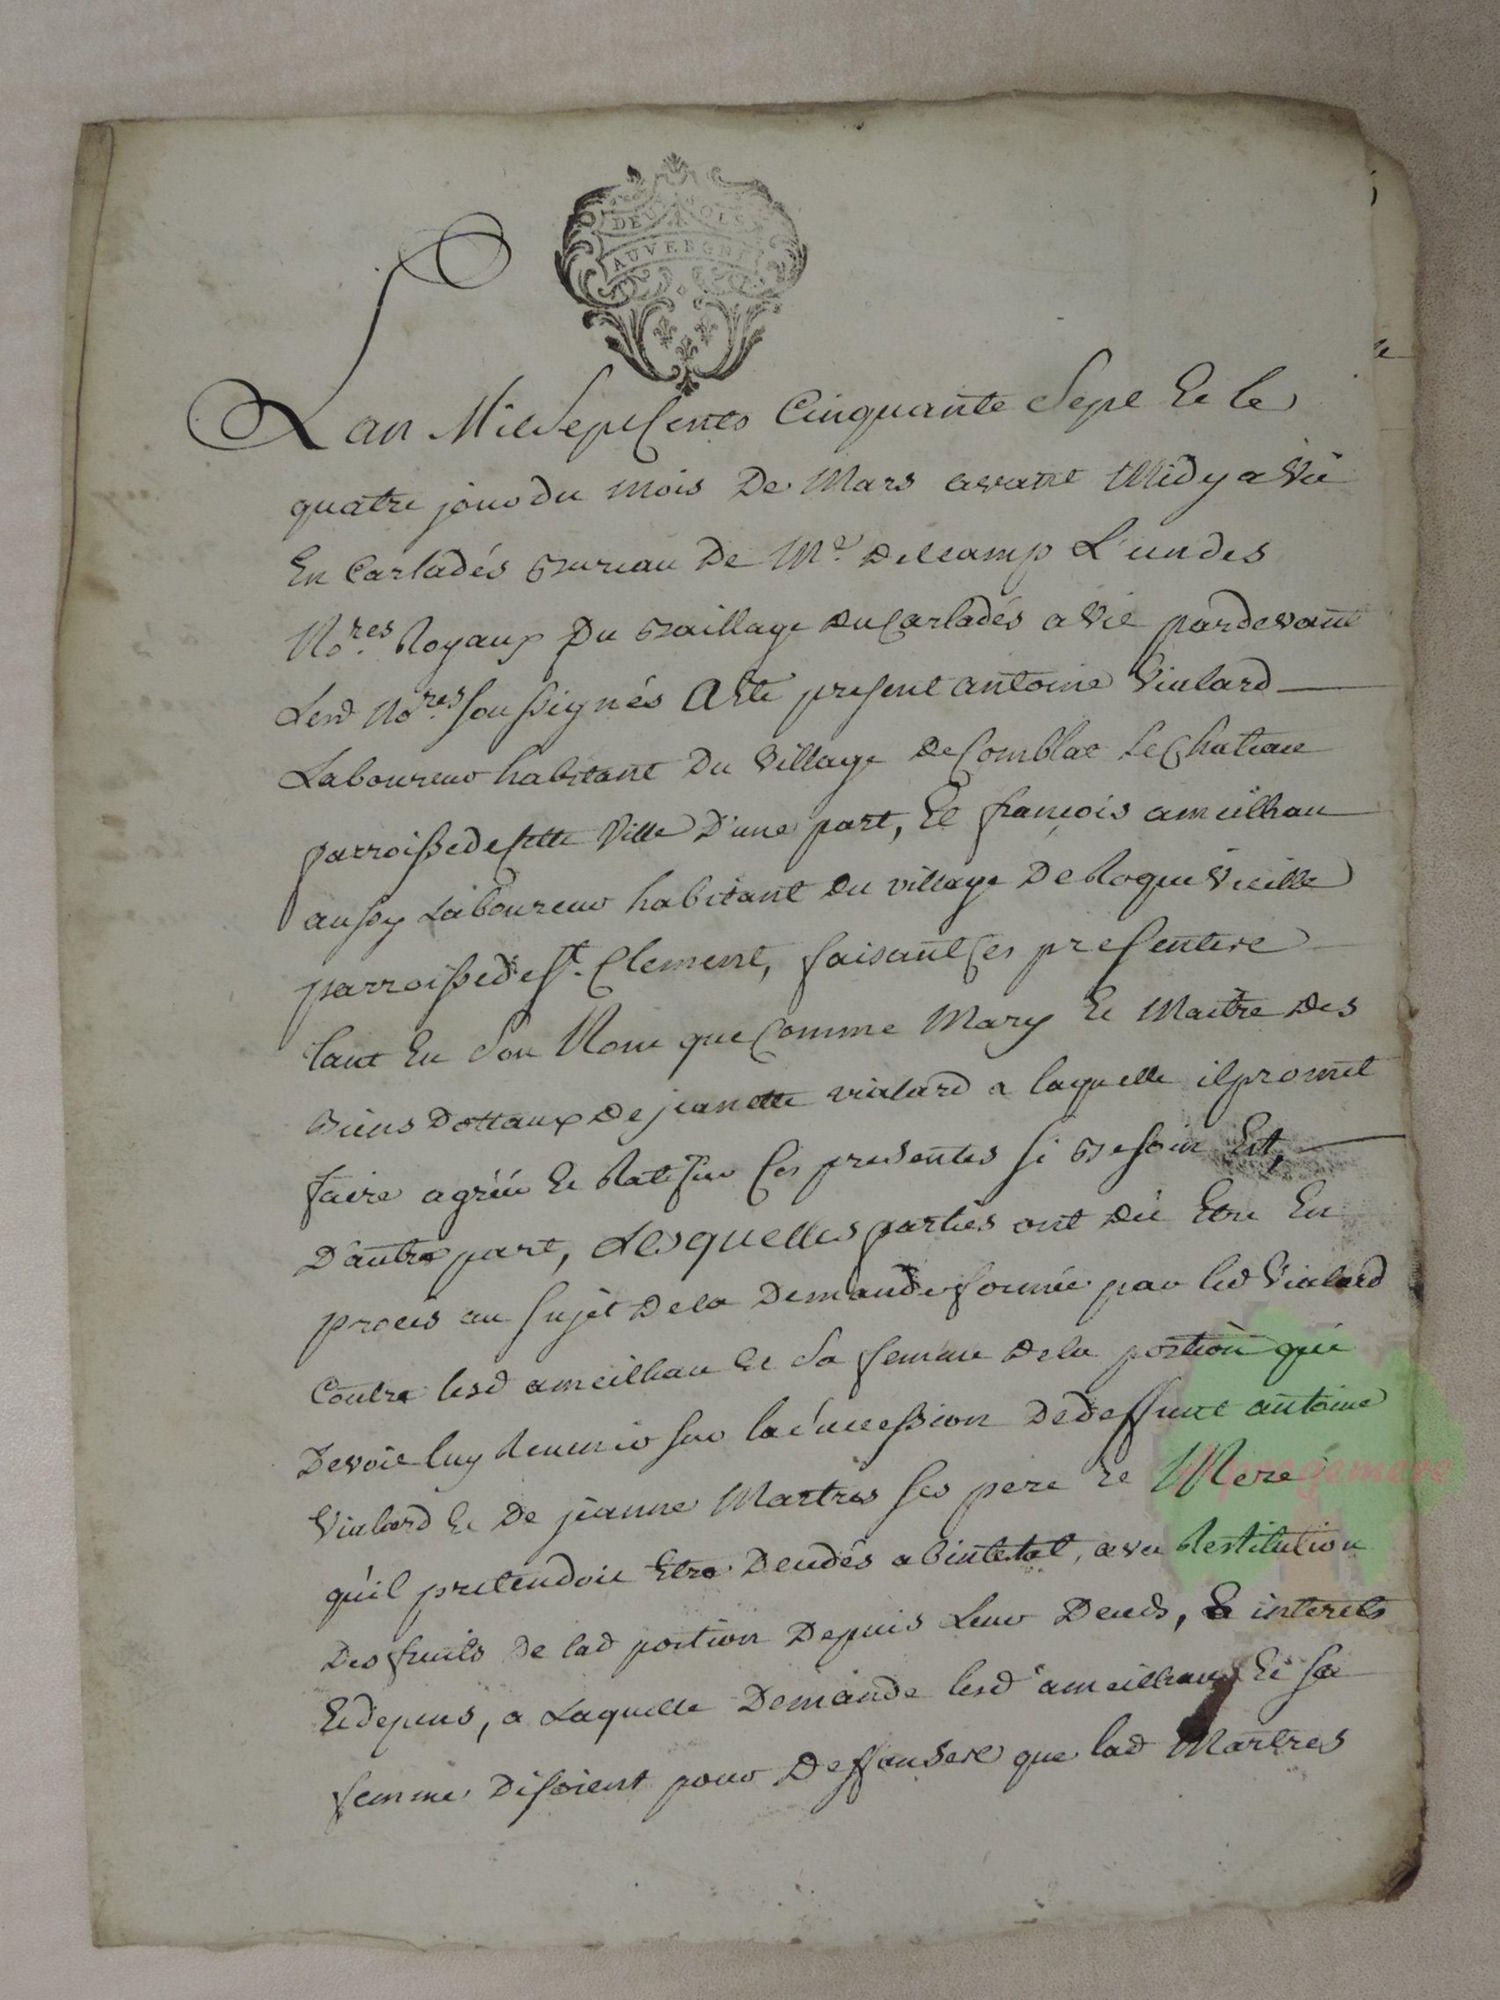 DEUX SOLS
AUVERGNE
Lan Mil Sept Cents Cinquante Sept Et le
quatre jour du mois De Mars avant Midy a Vic
En Carladés Bureau De Me. Delcamp L'un des
No.res Royaux Du Baillage du Carladés a Vic pardevant
Lesd No.res soussignés A Eté present antoine Vialard
Laboureur habitant Du Village De Comblat Le Chateau
parroisse de Cette Ville D'une part, Et françois ameilhau
aussy Laboureur habitant du village De Roque Vieille
parroisse de St. Clement, faisant Ces presentere
tant En Son Nom que Comme Mary Et Maitre Des
Biens Dottaux De jeanette vialard a laquelle il promet
faire agréer Et Ratifier Ces presentes si Besoin Est,
D'autre part, Lesquelles parties ont dit Etre En
procés au sujét De la Demande formée par led Vialard
Contre lesd ameilhau Et Sa femme De la portion qui
Devoit luy Revenir sur la súccession De deffunt antoine
Vialard Et De jeanne Martres ses pere Et Mere
qu'il pretendoit Etre Decedés abintetat, avec Restitution
Des fruits De lad portion Depuis Leur Deceds, Et interets
Et depens, a Laquelle Demande lesd ameilhau Et sa
femme Disoient pour Deffansere que lad Martres
aprogemere